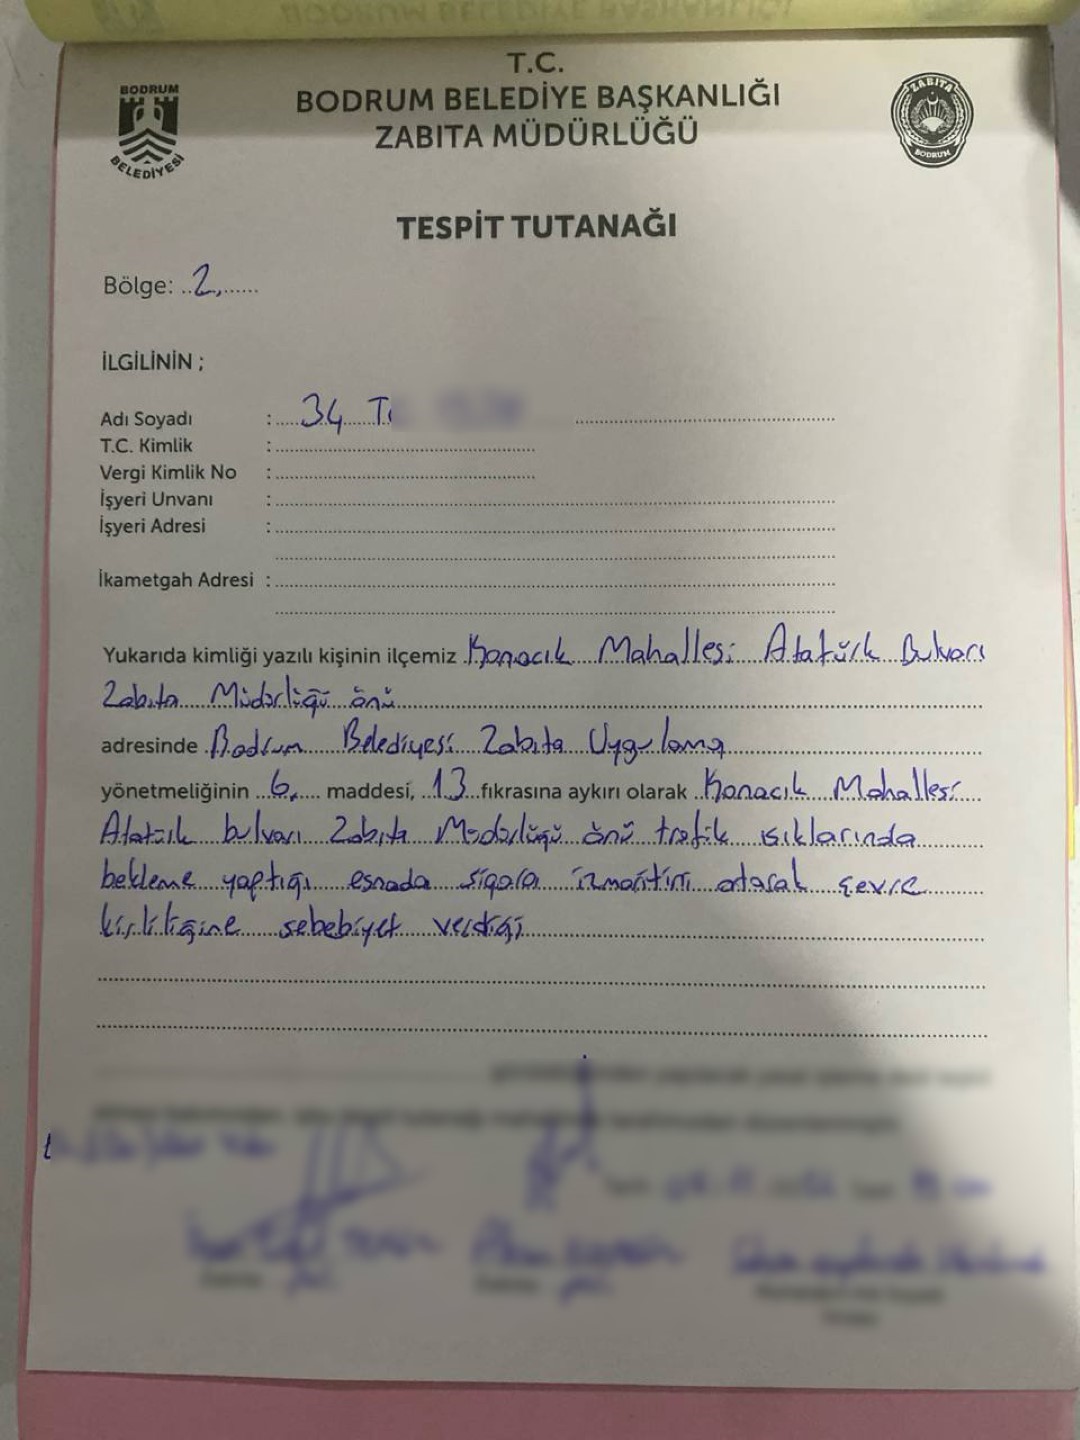 T.C.
BODRUM BELEDİYE BAŞKANLIĞI
ZABITA MÜDÜRLÜĞÜ
BODRUM
BELEDİYESİ
ZABITA
BODRUM
TESPİT TUTANAĞI
Bölge: 2
İLGİLİNİN ;
Adı Soyadı : 34
T.C. Kimlik :
Vergi Kimlik No :
İşyeri Unvanı :
İşyeri Adresi :
İkametgah Adresi :
Yukarıda kimliği yazılı kişinin ilçemiz Konacık Mahallesi Atatürk Bulvarı
Zabıta Müdürlüğü önü
adresinde Bodrum Belediyesi Zabıta Uygulama
yönetmeliğinin 6. maddesi, 13 fıkrasına aykırı olarak Konacık Mahallesi
Atatürk bulvarı Zabıta Müdürlüğü önü trafik ışıklarında
bekleme yaptığı esnada sigara izmaritini atarak çevre
kirliliğine sebebiyet verdiği